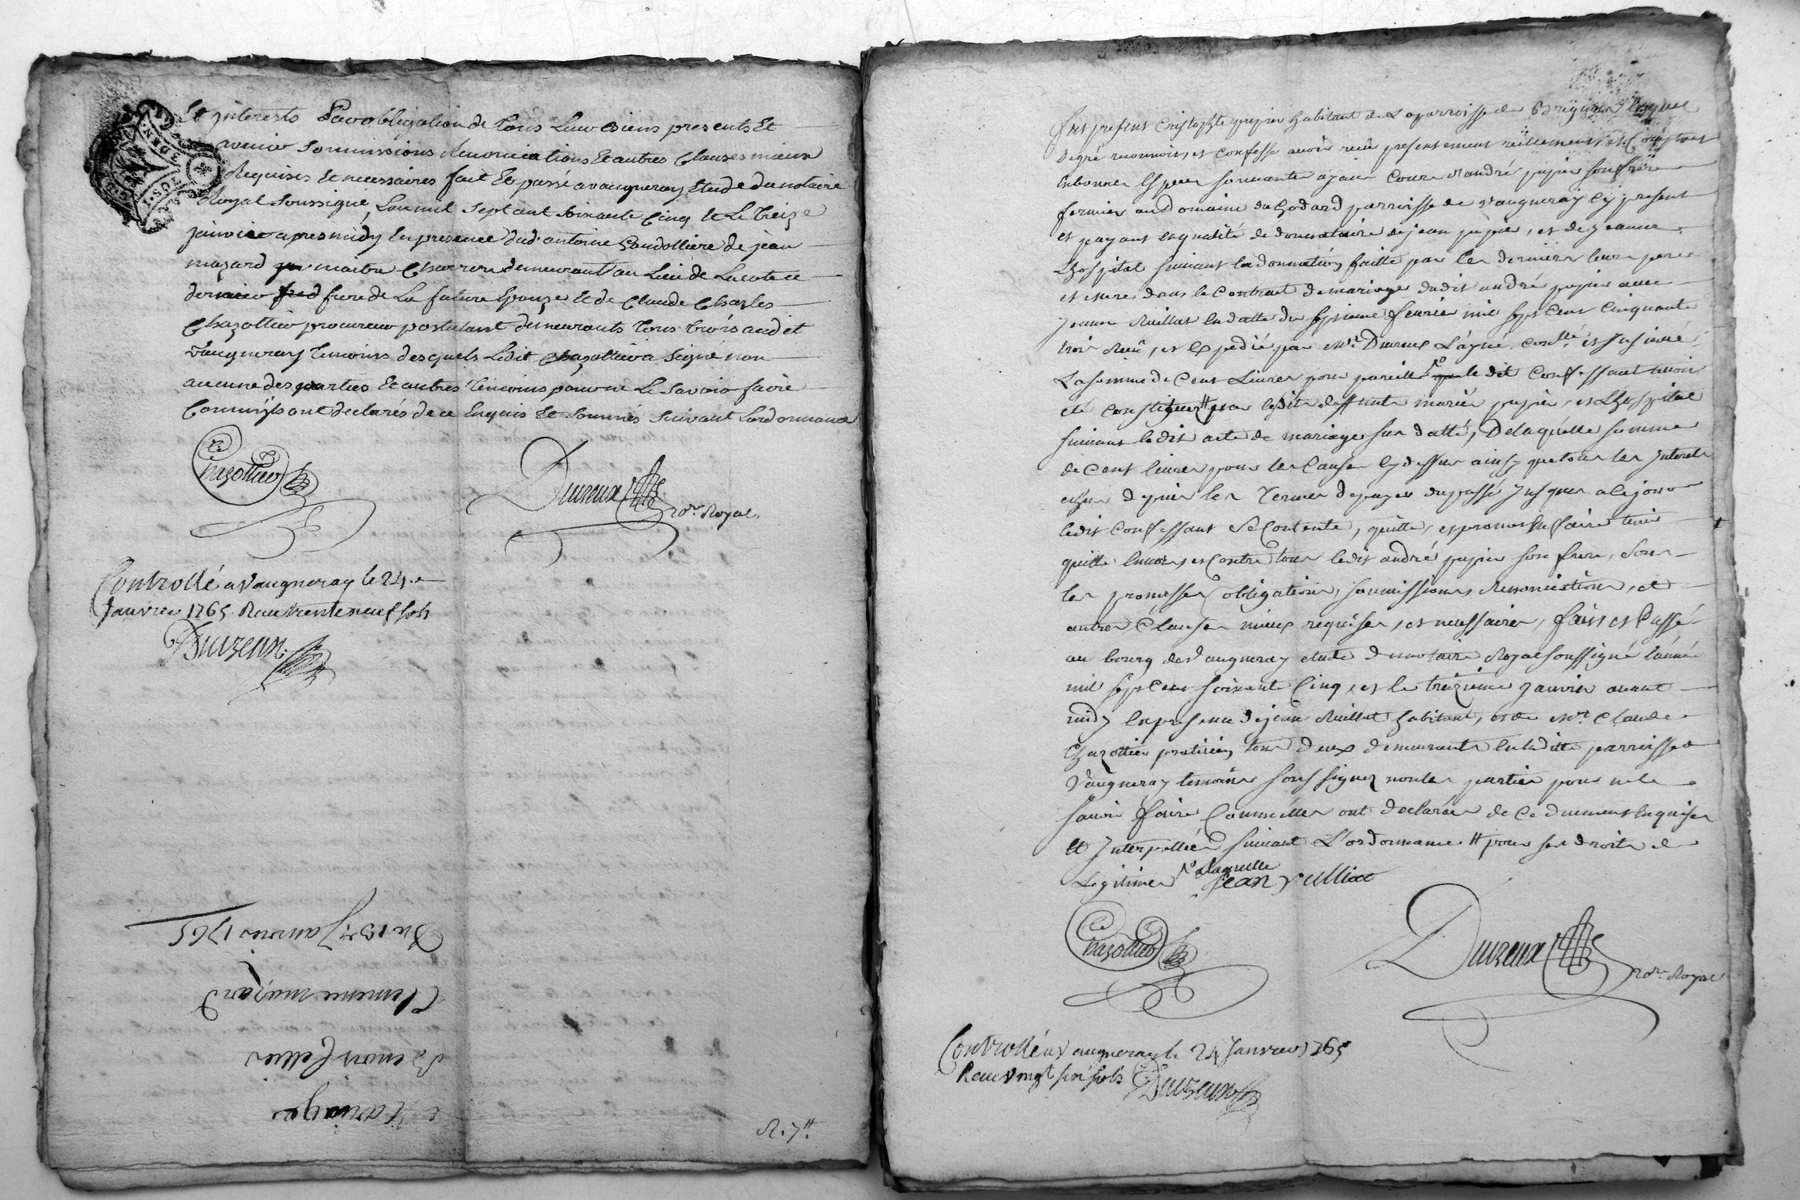 Et jnterests Par obligation de Tous Leurs biens presents Et
avenir Soumissions Renonciations Et autres Clauses mieux
Requises Et necessaires fait Et passé a vaugneray Etude du notaire
Royal Soussigné, Lan mil Sept cent Soixante Cinq Et Le Treize
janvier apres midy En presence dud. antoine de jean
mazard maitre Charron demeurant au Lieu de
dernier frere de La future Epouze Et de Claude Charles
Chazottier procureur postulant demeurants Tous trois aud et
vaugneray Temoins desquels Ledit Chazottier a Signé non
aucune des parties Et autres Temoins pour ne Le Savoir faire
Comm'ils ont declarés de ce Enquis Et Sommés Suivant Lordonnance
Chazottier
Duizeux
no.re Royal
Controllé a Vaugneray le 24.e
Janvier 1765 Reçu trente neuf sols
Duizeux
Du 13e Janvier 1765
Clemence mazard
Benoit Cellier
Mariage
R. 7#.
fut present Cristophle pupier habitant de La parroisse de
degré reconnoit, et Confesse avoir reçu presentement reellement et Comptant
en bonnes Especes Sonnante ayant Cours d'andré pupier son frere
fermier au Domaine du Godard parroisse de Vaugneray Cy present
et payant en qualité de donnataire de jean pupier, et de jeanne
Lhospital suivant la donnation faitte par les derniers leurs pere
et mere dans le Contrat de mariage dudit andré pupier avec
jeanne Ruillat en datte du Septieme fevrier mil Sept Cent Cinquante
trois Reçu, et Expedié par Me. Duizeux L'ayné, Con.lé et Insinué,
La somme de Cent Livres pour pareille que ledit Confessant
été Constituer par lesdits deffunts mariés pupier, et Lhospital
suivant ledit acte de mariage sus datté, De laquelle somme
de Cent livres pour les Causes Cy dessus ainsy que tous les jnterets
echus depuis les Termes de payer du passé jusques a ce jour
ledit Confessant Se Contente, quitte, et promet En faire tenir
quitte Envers, et Contre tous ledit andré pupier son frere, Sous
les promesses obligations, soumissions, Renonciations, et
autres Clauses mieux requises, et necessaires, fait et Passé
au bourg de Vaugneray etude du notaire Royal soussigné l'année
mil Sept Cent Soixante Cinq, et le treizieme Janvier avant
midy En presence de jean Ruillat habitant, et de Me. Claude
Chazottier praticien, tous deux demeurants En ladite parroisse de
Vaugneray temoins soussignez non les parties pour ne le
Savoir faire Comm'elles ont declarées de Ce duement Enquises
et Interpellées suivant L'ordonnance # pour ses droits de
Legitime laquelle
jean rulliat
Chazottier
Duizeux
no.re Royal
Controllé a Vaugneray le 24 Janvier 1765
Reçu Vingt six sols Duizeux